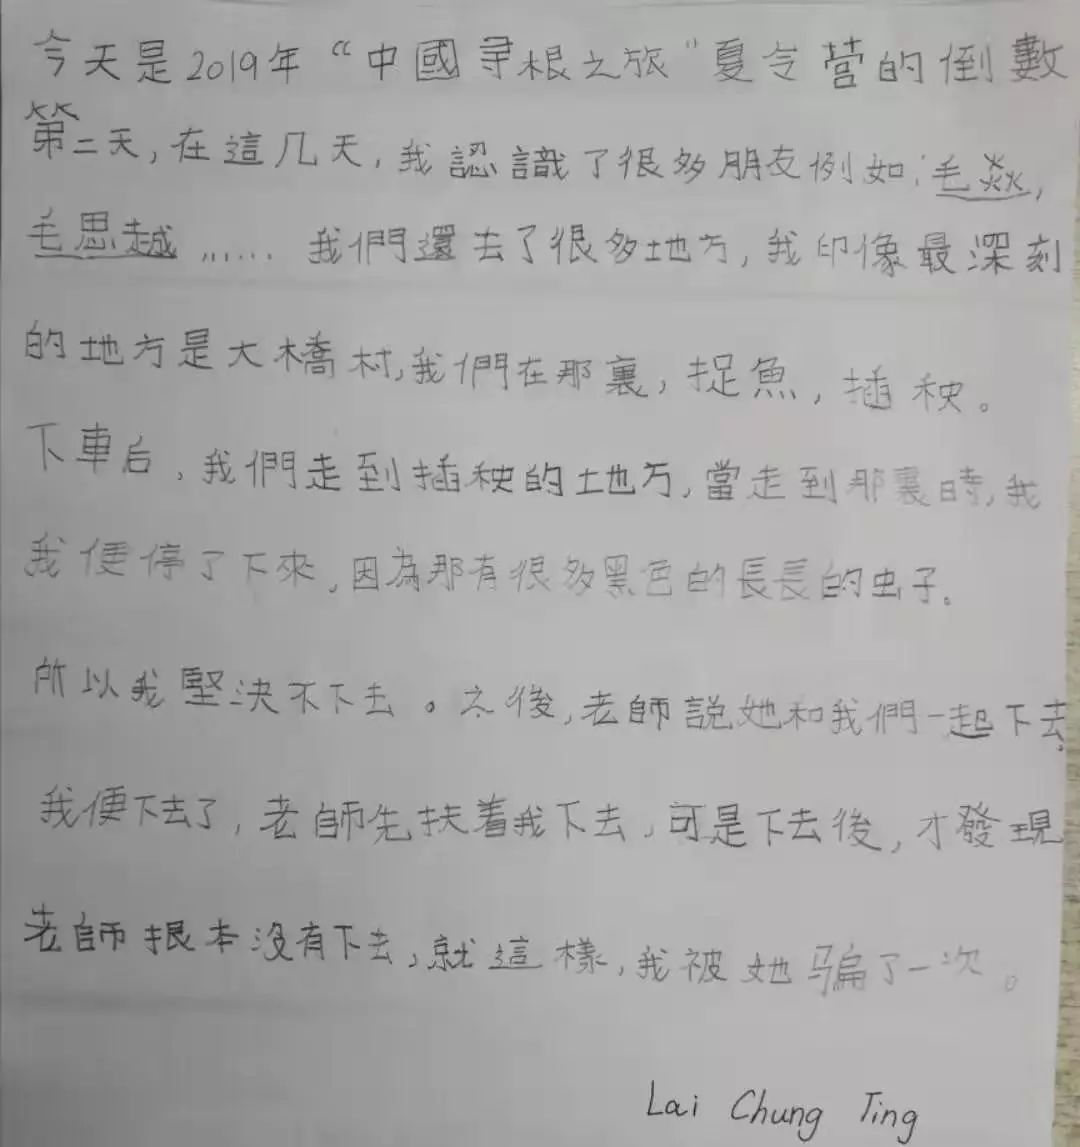 今天是2019年“中國寻根之旅”夏令營的倒數
第二天,在這几天,我認識了很多朋友例如:毛焱,
毛思越......我們還去了很多地方,我印像最深刻
的地方是大橋村,我們在那裏,捉魚,插秧。
下車后,我們走到插秧的地方,當走到那裏時,我
我便停了下來,因為那有很多黑色的長長的虫子。
所以我堅決不下去。之後,老師説她和我們一起下去,
我便下去了,老師先扶着我下去,可是下去後,才發現
老師根本没有下去,就這樣,我被她骗了一次。
Lai Chung Ting